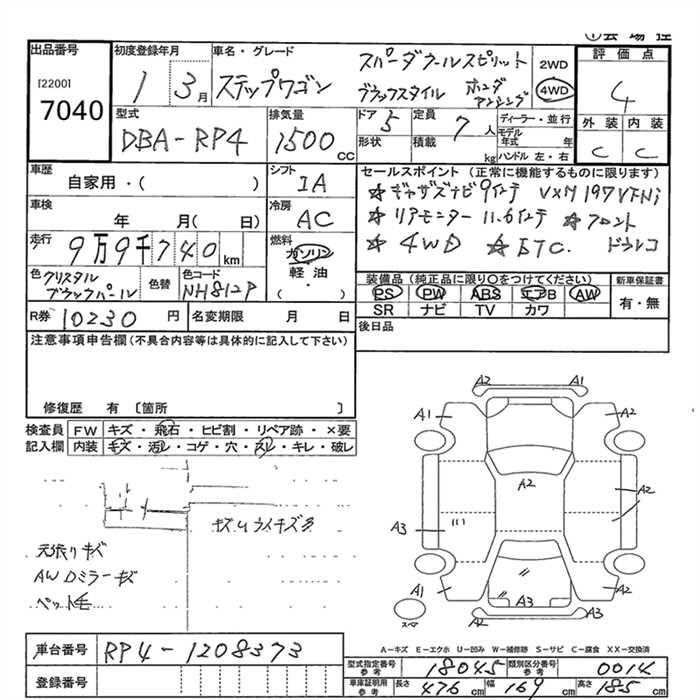 出品番号
[2200]
7040
初度登録年月
1 3月
車名・グレード
ステップワゴン
スパーダクールスピリット
ブラックスタイル ホンダ
2WD
4WD
評価点
4
外装 内装
C C
型式
DBA-RP4
排気量
1500 CC
ドア 5
形状
定員 7 人
積載 kg
ディーラー・並行
モデル
年式 年
ハンドル 左・右
車歴
自家用・( )
シフト
IA
車検
年 月 ( 日)
冷房
AC
走行
9万9千740km
燃料
ガソリン
軽油
( ・ )
色 クリスタル
ブラックパール
色替
色コード
NH812P
セールスポイント (正常に機能するものに限ります)
☆ギャザズナビ9インチ VXM197VFNi
☆リアモニター 11.6インチ ☆フロント
☆4WD ☆ETC. ドラレコ
装備品 (純正品に限り○をつけてください)
PS PW ABS エアB AW
SR ナビ TV カワ
新車保証書
有・無
後日品
R券 10230 円
名変期限 月 日
注意事項申告欄(不具合内容等は具体的に記入して下さい)
修復歴 有 〔箇所 〕
検査員
記入欄
FW キズ・飛石・ヒビ割・リペア跡・×要
内装 キズ・汚レ・コゲ・穴・スレ・キレ・破レ
キズ
天張りキズ
AW Dミラーキズ
ペット毛
A2 A1
A1 A2
A2
A2
A3
A3
A2 A2
A3
A2 A3
スペア
A-キズ E-エクボ U-凹み W-補修跡 S-サビ C-腐食 XX-交換済
車台番号
RP4-1208373
登録番号
型式指定番号
参考
18045
類別区分番号
参考
0014
車庫証明用
参考
長さ 476 cm
幅 169 cm
高さ 185 cm